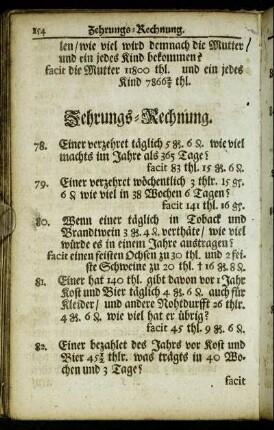 154 Zehrungs-Rechnung.
len / wie viel wird demnach die Mutter /
und ein jedes Kind bekommen?
facit die Mutter 11800 thl. und ein jedes
Kind 7866⅔ thl.
Zehrungs-Rechnung.
78. Einer verzehret täglich 5 gl. 6 ₰. wie viel
machts im Jahre als 365 Tage?
facit 83 thl. 15 gl. 6 ₰.
79. Einer verzehret wöchentlich 3 thlr. 15 gr.
6 ₰ wie viel in 38 Wochen 6 Tagen?
facit 141 thl. 16 gr.
80. Wenn einer täglich in Toback und
Brandtwein 3 gl. 4 ₰. verthäte / wie viel
würde es in einem Jahre austragen?
facit einen feisten Ochsen zu 30 thl. und 2 fei-
ste Schweine zu 20 thl. † 16 gl. 8 ₰.
81. Einer hat 140 thl. gibt davon vor 1 Jahr
Kost und Bier täglich 4 gl. 6 ₰. auch für
Kleider / und andere Nohtdurfft 26 thlr.
4 gl. 6 ₰. wie viel hat er übrig?
facit 45 thl. 9 gl. 6 ₰.
82. Einer bezahlet des Jahrs vor Kost und
Bier 45½ thlr. was trägts in 40 Wo-
chen und 3 Tage?
facit